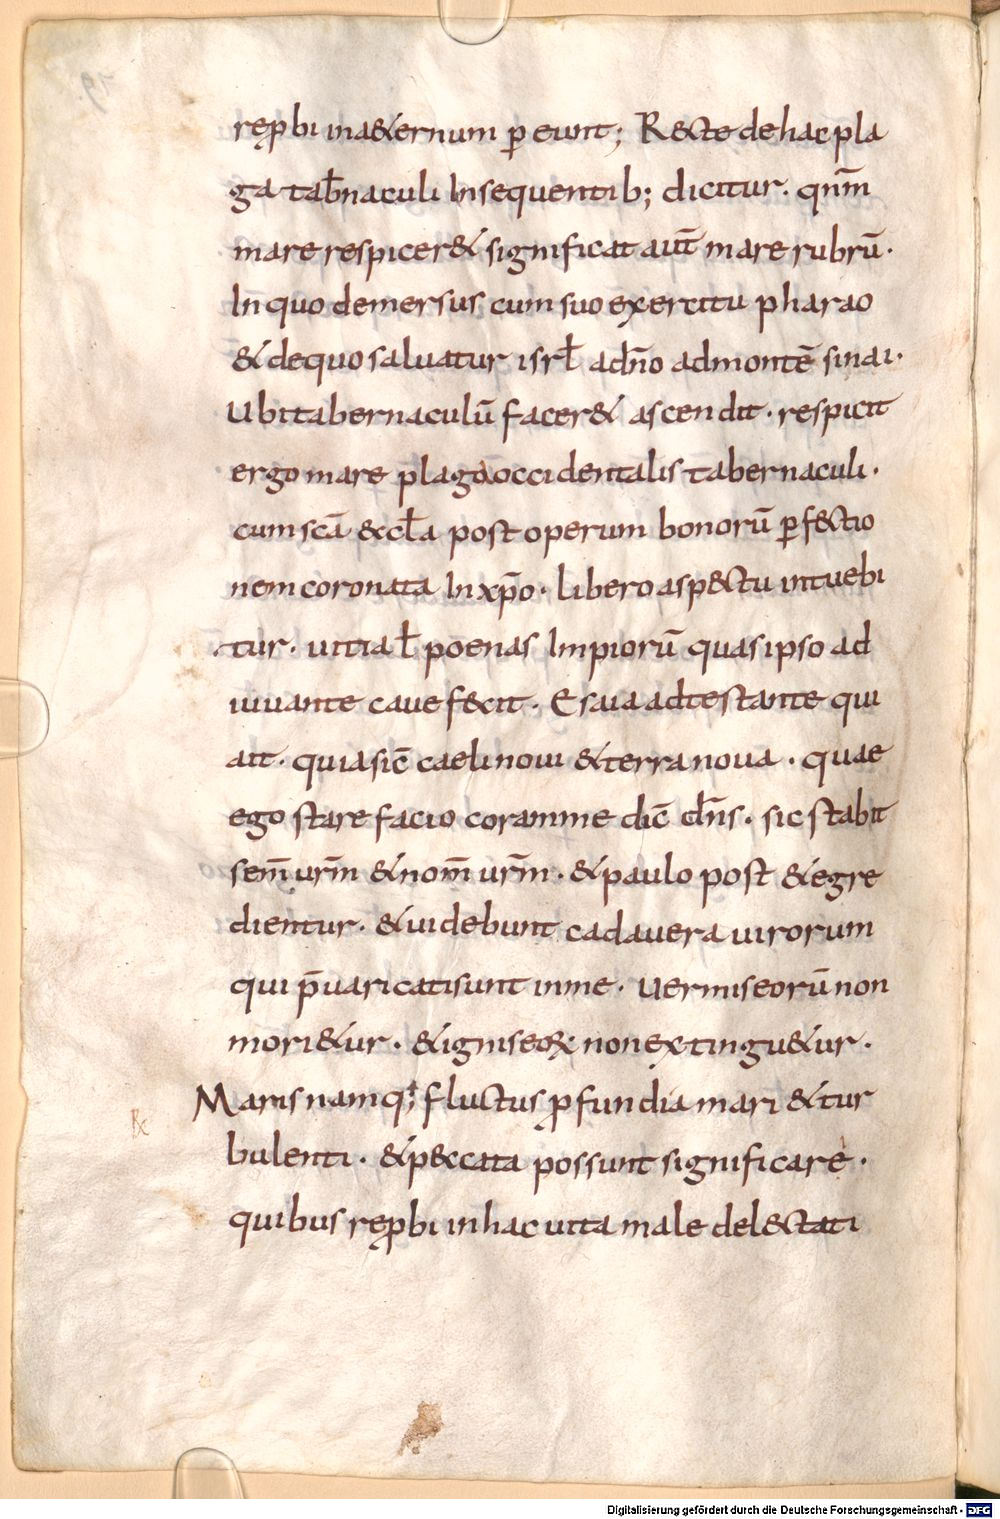 rep̱bi in a&ernum ꝑeunt; Recte de hac pla
ga tab̅naculi In sequentib; dicitur. qn̅m
mare respicer& significat aut̅ mare rubru̅.
In quo demersus cum suo exercitu pharao
& de quo saluatur isrł ad dn̅o ad monte̅ sinai.
Ubi tabernaculu̅ facer& ascendit. respicit
ergo mare plaga occidentalis tabernaculi.
cum sca̅ &ccła post operum bonoru̅ ꝑf&ctio
nem coronata In xp̅o. libero asp&ctu intuebi
tur. uitia ł poenas Impioru̅ quas ipso ad
iuuante caue fecit. Esaia adtestante qui
ait. quia sic̅ caeli noui & terra noua. quae
ego stare facio coram me dic̅ dn̅s. sic stabit
sem̅ ur̅m & nom̅ ur̅m. & paulo post & egre
dientur. & uidebunt cadauera uirorum
qui p̅uaricati sunt in me. Uermis eoru̅ non
mori&ur. & ignis eoꝝ non extingu&ur.
Maris namq; fluctus ꝓfundi amari & tur
bulenti. & p&ccata possunt significare.
quibus reꝓbi in hac uita male del&ctati
Digitalisierung gefördert durch die Deutsche Forschungsgemeinschaft - DFG